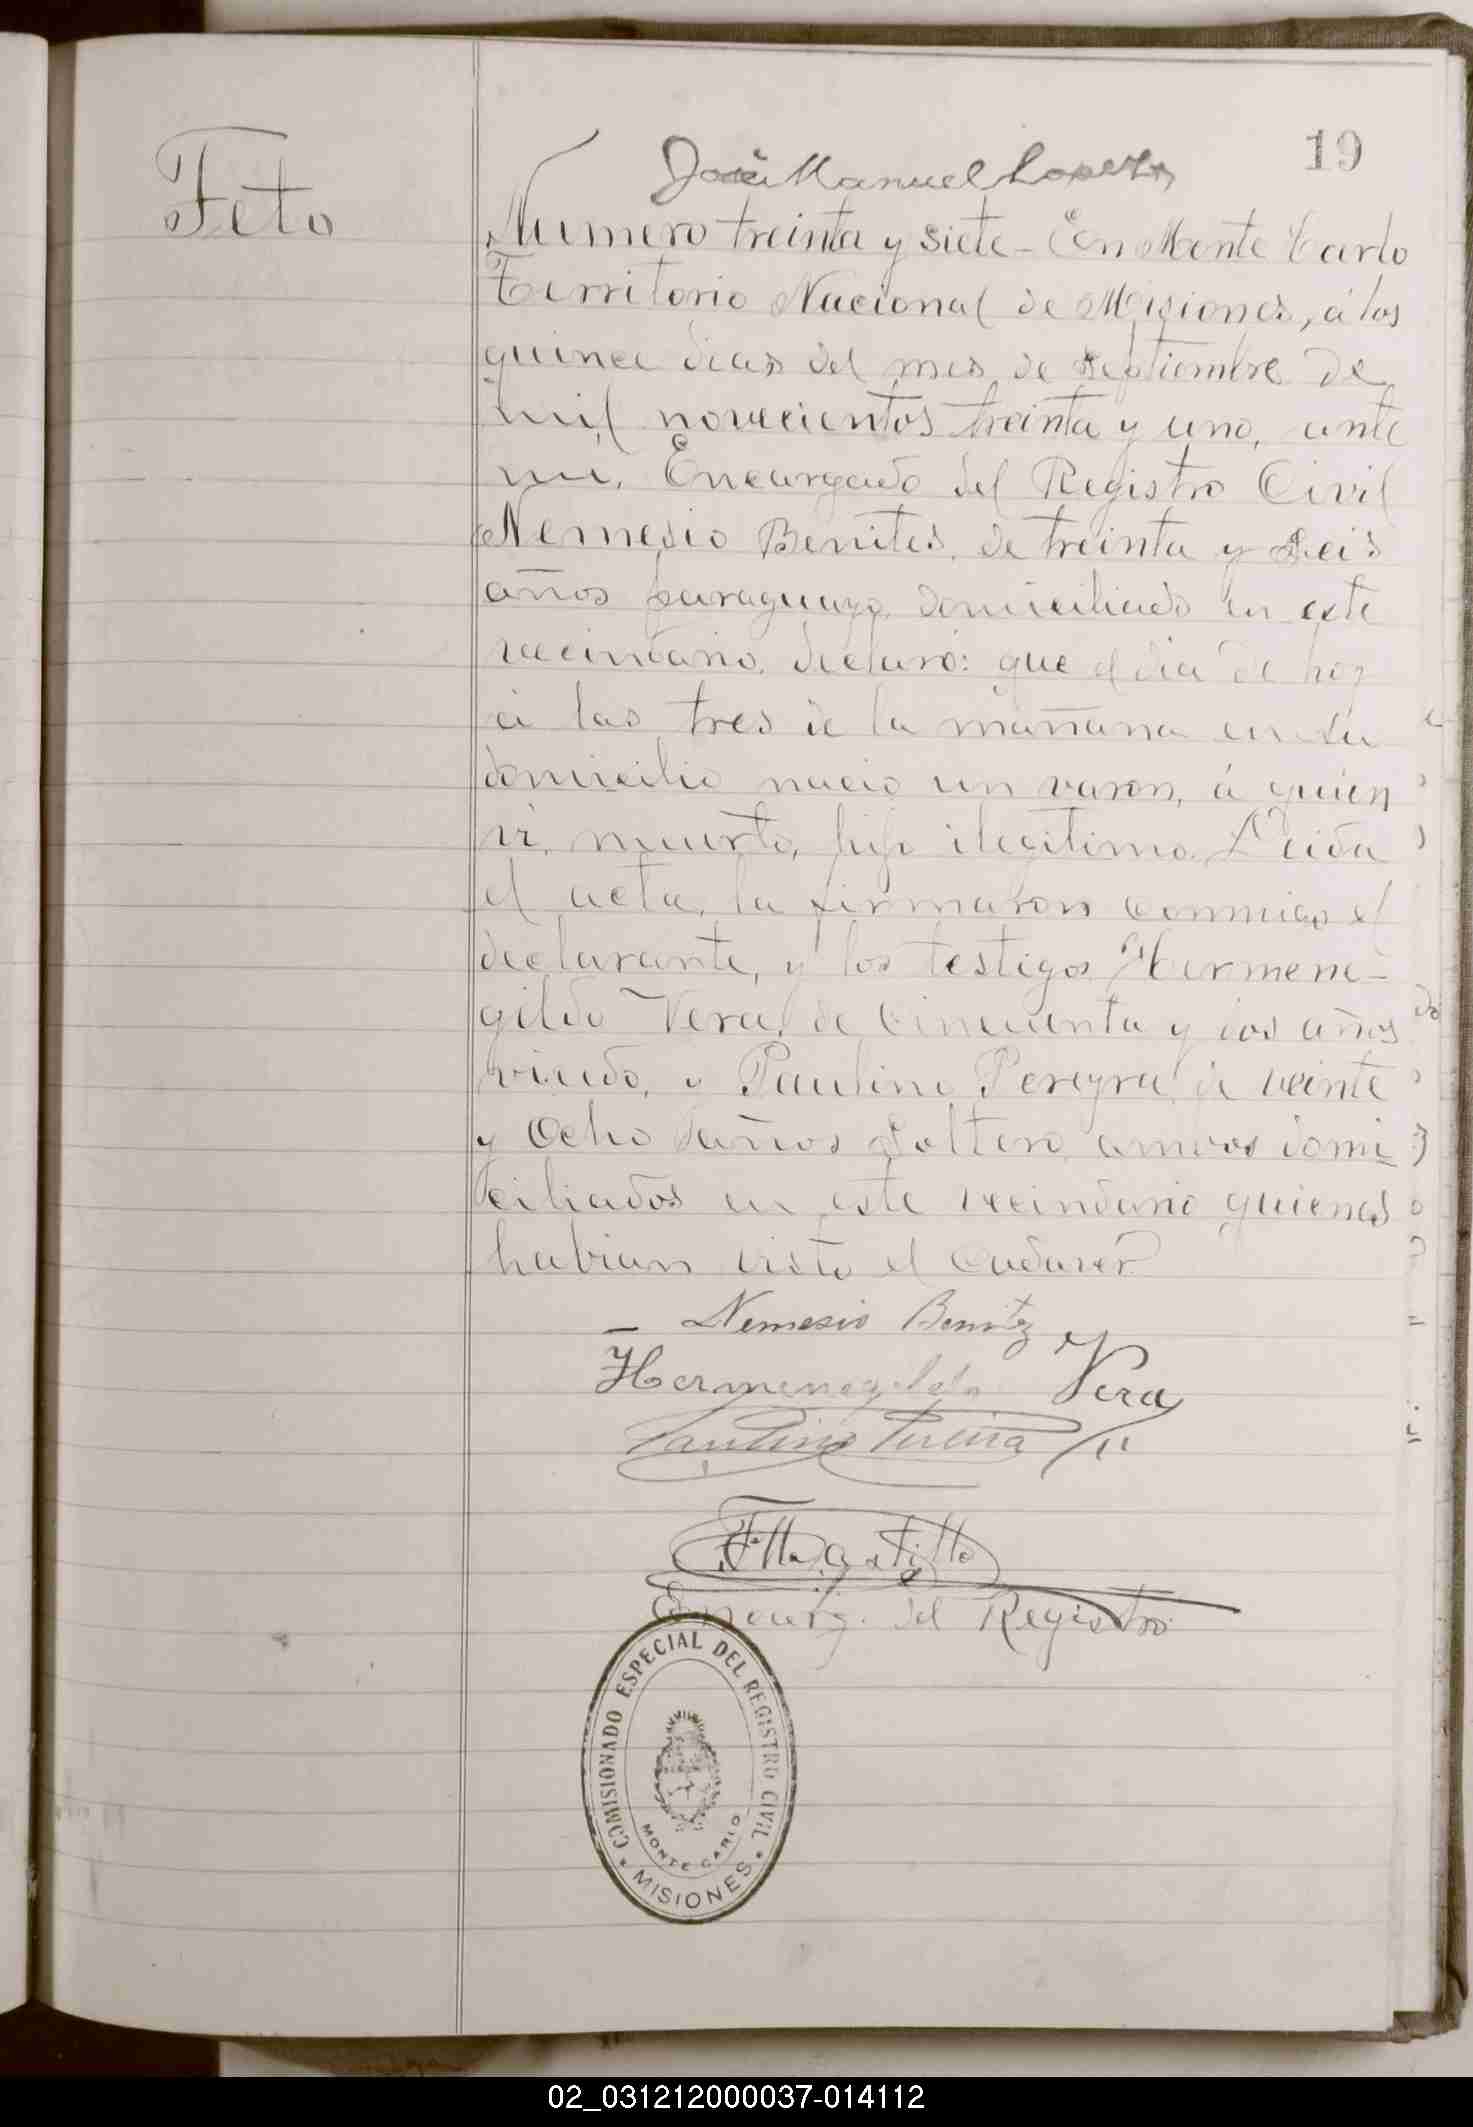 19
José Manuel Lopez
Feto
Numero treinta y siete - En Monte Carlo
Territorio Nacional de Misiones, á los
quince dias del mes de septiembre de
mil novecientos treinta y uno, ante
mi, Encargado del Registro Civil
Nemesio Benites, de treinta y seis
años paraguayo, domiciliado en este
vecindario, declaró: que el dia de hoy
á las tres de la mañana en su
domicilio nacio un varon, á quien
vi, muerto, hijo ilegitimo. Leida
el acta, la firmaron conmigo el
declarante, y los testigos Hermene-
gildo Vera, de cincuenta y dos años
viudo, y Paulino Pereyra, de veinte
y Ocho años Soltero, ambos domi
ciliados en este vecindario quienes
habian visto el cadaver
Nemesio Benitez
Hermenegildo Vera
Paulino Pereira
Encarg. del Registro
COMISIONADO ESPECIAL DEL REGISTRO CIVIL
MONTE CARLO
MISIONES
02_031212000037-014112